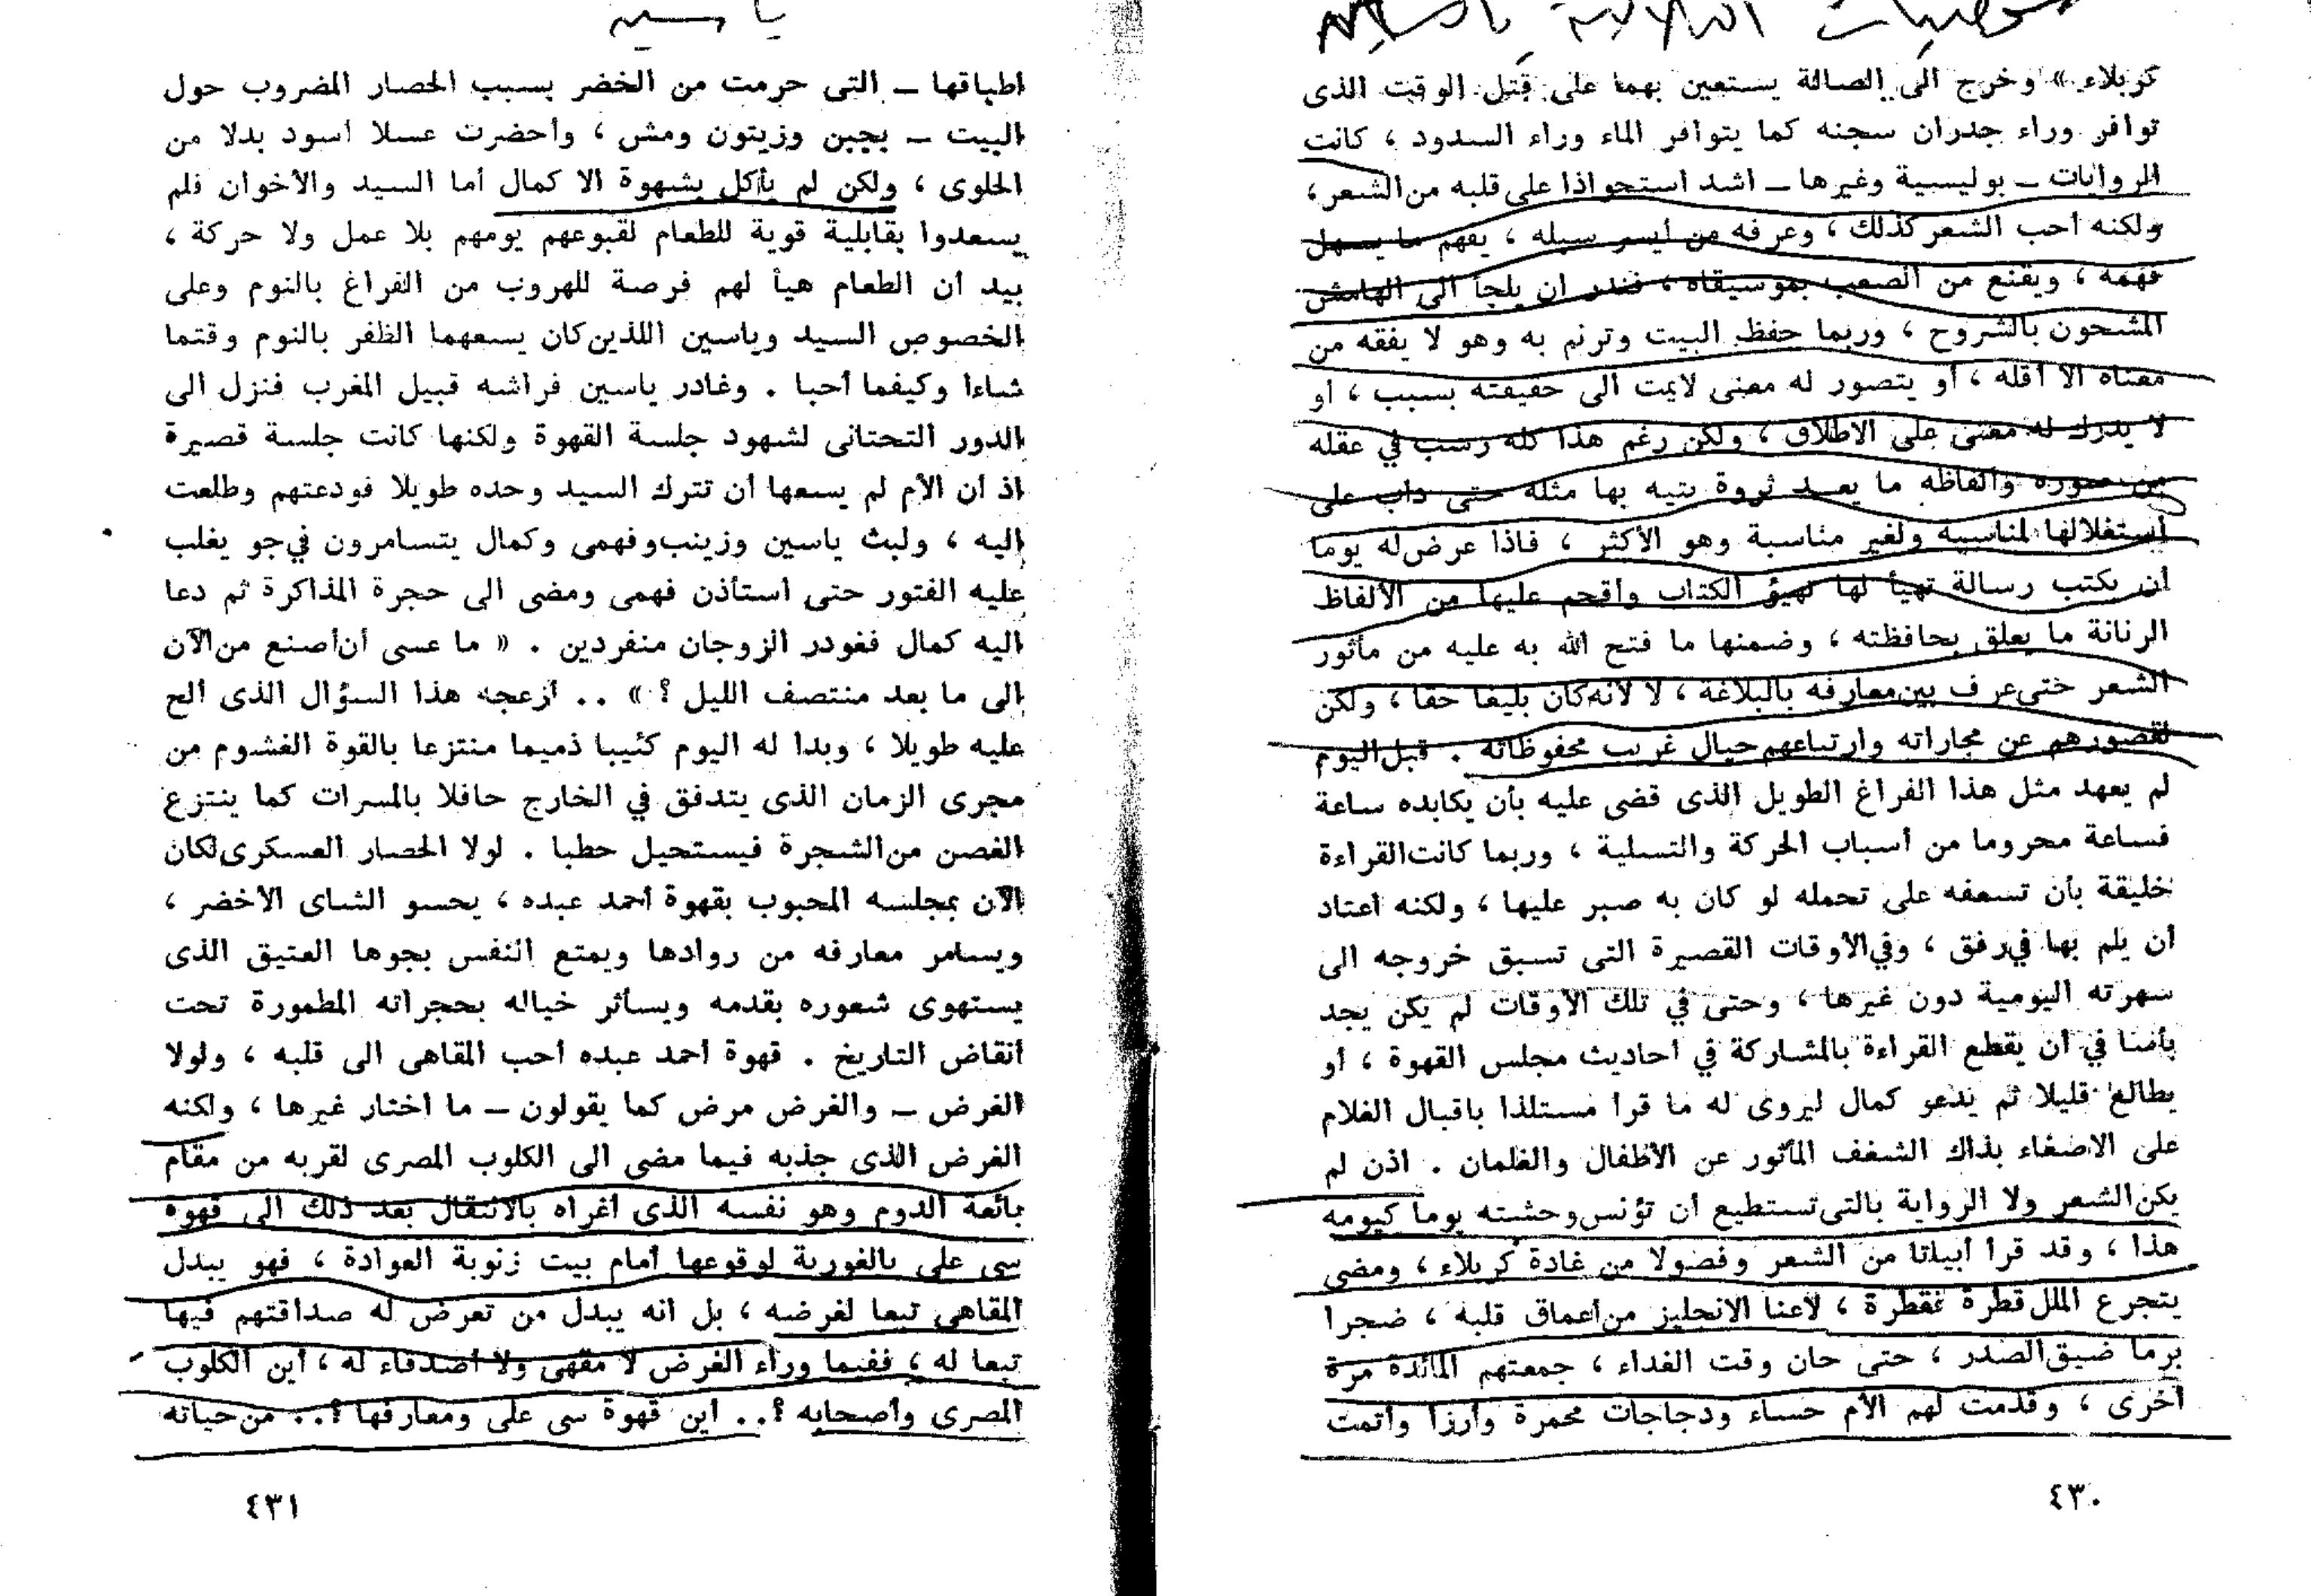 كربلاء » وخرج الى الصالة يستعين بهما على قتل الوقت الذى
توافر وراء جدران سجنه كما يتوافر الماء وراء السدود ، كانت
الروايات — بوليسية وغيرها — اشد استحواذا على قلبه من الشعر ،
ولكنه أحب الشعر كذلك ، وعرفه من أيسر سبله ، يفهم ما يسهل
فهمه ، ويقنع من الصعب بموسيقاه ، فندر ان يلجأ الى الهامش
المشحون بالشروح ، وربما حفظ البيت وترنم به وهو لا يفقه من
معناه الا أقله ، أو يتصور له معنى لايمت الى حقيقته بسبب ، أو
لا يدرك له معنى على الاطلاق ، ولكن رغم هذا كله رسب في عقله
من صوره وألفاظه ما يعد ثروة يتيه بها مثله حتى دأب على
استغلالها لمناسبة ولغير مناسبة وهو الأكثر ، فاذا عرض له يوما
أن يكتب رسالة تهيأ لها تهيؤ الكتاب وأقحم عليها من الألفاظ
الرنانة ما يعلق بحافظته ، وضمنها ما فتح الله به عليه من مأثور
الشعر حتى عرف بين معارفه بالبلاغة ، لا لأنه كان بليغا حقا ، ولكن
لقصورهم عن مجاراته وارتياعهم حيال غريب محفوظاته . قبل اليوم
لم يعهد مثل هذا الفراغ الطويل الذى قضى عليه بأن يكابده ساعة
فساعة محروما من أسباب الحركة والتسلية ، وربما كانت القراءة
خليقة بأن تسعفه على تحمله لو كان به صبر عليها ، ولكنه اعتاد
أن يلم بها في رفق ، وفي الأوقات القصيرة التى تسبق خروجه الى
سهرته اليومية دون غيرها ، وحتى في تلك الأوقات لم يكن يجد
بأسا في أن يقطع القراءة بالمشاركة في أحاديث مجلس القهوة ، أو
يطالع قليلا ثم يدعو كمال ليروى له ما قرأ مستلذا باقبال الغلام
على الاصغاء بذاك الشغف المأثور عن الأطفال والغلمان . اذن لم
يكن الشعر ولا الرواية بالتى تستطيع أن تؤنس وحشته يوما كيومه
هذا ، وقد قرأ أبياتا من الشعر وفصولا من غادة كربلاء ، ومضى
يتجرع الملل قطرة فقطرة ، لاعنا الانجليز من أعماق قلبه ، ضجرا
برما ضيق الصدر ، حتى حان وقت الغداء ، جمعتهم المائدة مرة
أخرى ، وقدمت لهم الأم حساء ودجاجات محمرة وأرزا وأتمت
٤٣٠
ياسين
أطباقها — التى حرمت من الخضر بسبب الحصار المضروب حول
البيت — بجبن وزيتون ومش ، وأحضرت عسلا أسود بدلا من
الحلوى ، ولكن لم يأكل بشهوة الا كمال أما السيد والأخوان فلم
يسعدوا بقابلية قوية للطعام لقبوعهم يومهم بلا عمل ولا حركة ،
بيد أن الطعام هيأ لهم فرصة للهروب من الفراغ بالنوم وعلى
الخصوص السيد وياسين اللذين كان يسعهما الظفر بالنوم وقتما
شاءا وكيفما أحبا . وغادر ياسين فراشه قبيل المغرب فنزل الى
الدور التحتانى لشهود جلسة القهوة ولكنها كانت جلسة قصيرة
اذ أن الأم لم يسعها أن تترك السيد وحده طويلا فودعتهم وطلعت
اليه ، ولبث ياسين وزينب وفهمى وكمال يتسامرون في جو يغلب
عليه الفتور حتى استأذن فهمى ومضى الى حجرة المذاكرة ثم دعا
اليه كمال فغودر الزوجان منفردين . « ما عسى أن أصنع من الآن
الى ما بعد منتصف الليل ؟ » .. أزعجه هذا السؤال الذى ألح
عليه طويلا ، وبدا له اليوم كئيبا ذميما منتزعا بالقوة الغشوم من
مجرى الزمان الذى يتدفق في الخارج حافلا بالمسرات كما ينتزع
الغصن من الشجرة فيستحيل حطبا . لولا الحصار العسكرى لكان
الآن بمجلسه المحبوب بقهوة أحمد عبده ، يحسو الشاى الأخضر ،
ويسامر معارفه من روادها ويمتع النفس بجوها العتيق الذى
يستهوى شعوره بقدمه ويسأثر خياله بحجراته المطمورة تحت
أنقاض التاريخ . قهوة أحمد عبده أحب المقاهى الى قلبه ، ولولا
الغرض — والغرض مرض كما يقولون — ما اختار غيرها ، ولكنه
الغرض الذى جذبه فيما مضى الى الكلوب المصرى لقربه من مقام
بائعة الدوم وهو نفسه الذى أغراه بالانتقال بعد ذلك الى قهوة
سى على بالغورية لوقوعها أمام بيت زنوبة العوادة ، فهو يبدل
المقاهى تبعا لغرضه ، بل انه يبدل من تعرض له صداقتهم فيها
تبعا له ، ففيما وراء الغرض لا مقهى ولا أصدقاء له ، أين الكلوب
المصرى وأصحابه ؟.. أين قهوة سى على ومعارفها ؟.. من حياته
٤٣١